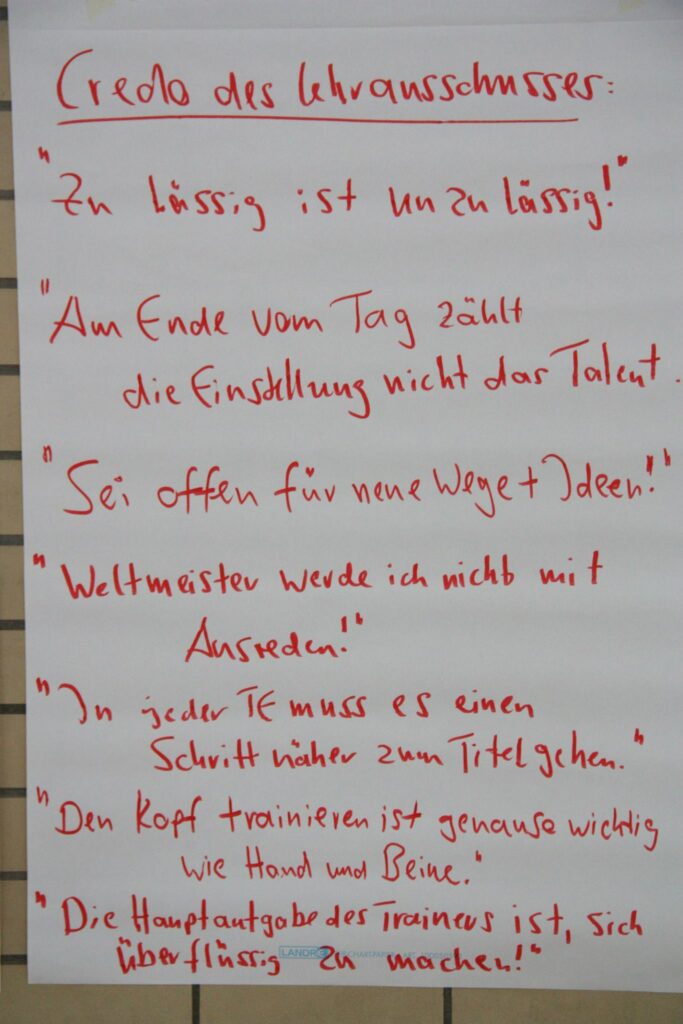 Credo des Lehrausschusses:
"Zu lässig ist unzulässig!"
"Am Ende vom Tag zählt
die Einstellung nicht das Talent.
"Sei offen für neue Wege + Ideen!"
"Weltmeister werde ich nicht mit
Ausreden!"
"In jeder TE muss es einen
Schritt näher zum Titel gehen."
"Den Kopf trainieren ist genauso wichtig
wie Hand und Beine."
"Die Hauptaufgabe des Trainers ist, sich
überflüssig zu machen!"